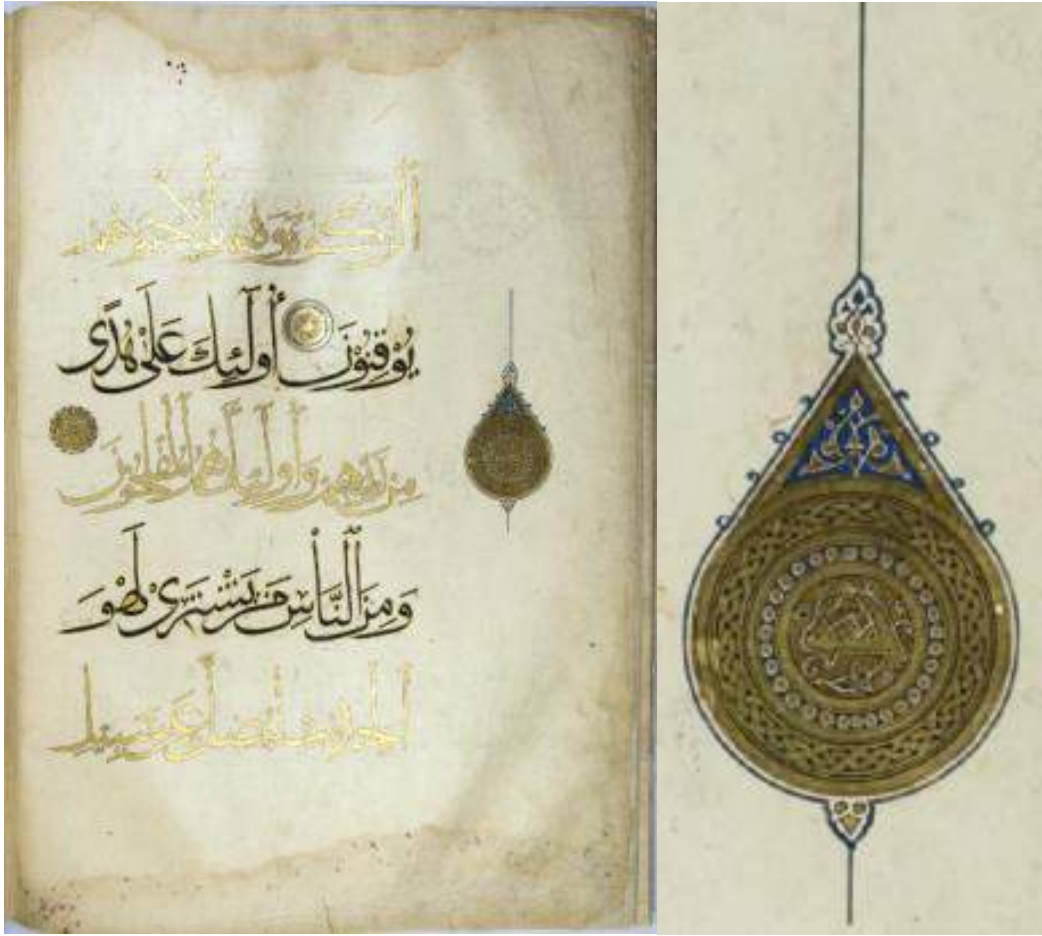 الزكوة وهم بالآخرة هم
يُوْقِنُوْنَ أُولَٰئِكَ عَلَىٰ هُدًى
مِن رَّبِّهِمْ وَأُولَٰئِكَ هُمُ الْمُفْلِحُونَ
وَمِنَ النَّاسِ مَن يَشْتَرِىْ لَهْوَ
الْحَدِيثِ لِيُضِلَّ عَن سَبِيلِ